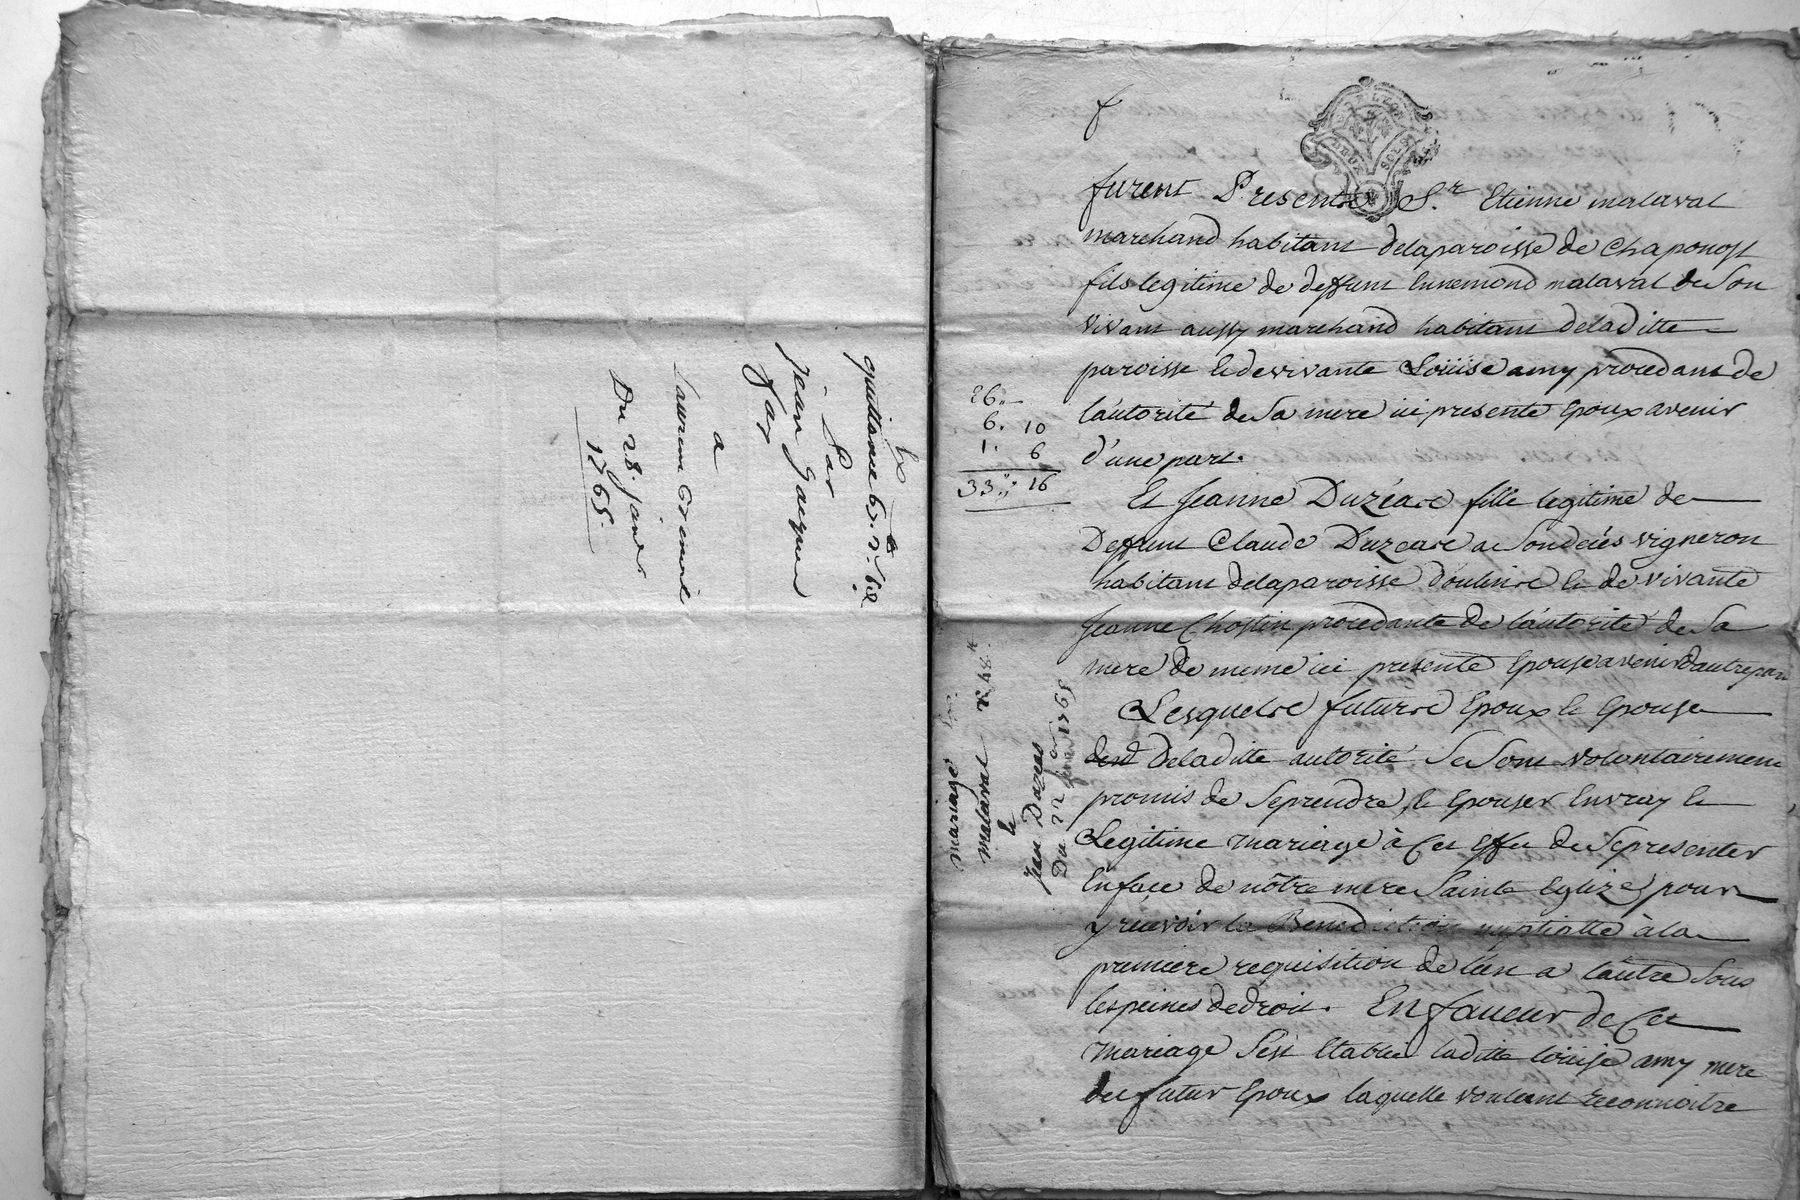 quittance
Par
Jean Jacques
Fay
a
Laurent
Du 28 janv
1765.
26
6. 10
1. 6
33 16
mariage
malaval
&
Jean Duzeas
Du 22 janv 1765
GE. DE LYON
DEUX SOLS
furent Presents Sr. Etienne malaval
marchand habitant delaparoisse de Chaponost
fils legitime de deffunt Ennemond malaval de Son
vivant aussy marchand habitant deladitte
paroisse & de vivante Loüise amy procedant de
l'autorité de Sa mere ici presente Epoux avenir
d'une part.
Et Jeanne Duzéare fille legitime de
Deffunt Claude Duzeare a Son decés vigneron
habitant delaparoisse d'oulins & de vivante
Jeanne Chostin procedante de l'autorité de Sa
mere de meme ici presente Epouse avenir d'autre part
Lesquels futurs Epoux & Epouse
deladitte autorité Se Sont volontairement
promis de Se prendre, & Epouser En vray &
Legitime mariage à Cet Effet de Se presenter
En façe de nôtre mere Sainte Eglize pour
y recevoir la Benediction nuptialle à la
premiere requisition de l'un a l'autre Sous
les peines de droit. En faveur de Cet
mariage S'est Etablie laditte loüise amy mere
du futur Epoux laquelle voulant reconnoitre